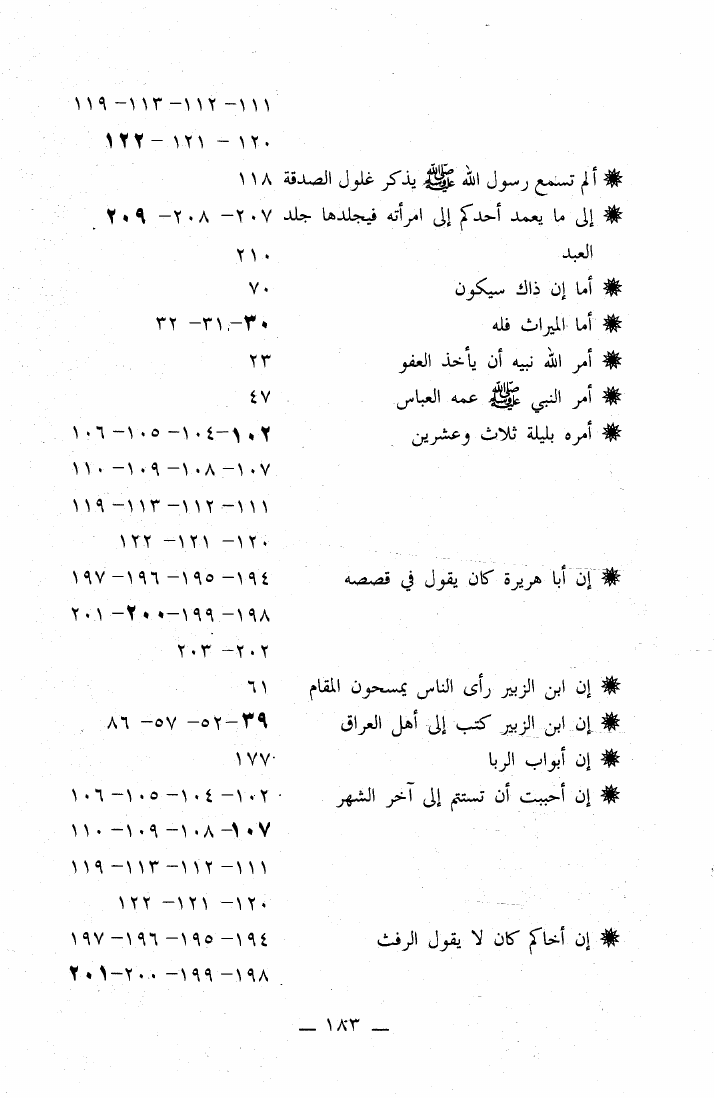 ١١١- ١١٢- ١١٣- ١١٩
١٢٠ - ١٢١ - ١٢٢
❋ ألم تسمع رسول الله ﷺ يذكر غلول الصدقة ١١٨
❋ إلى ما يعمد أحدكم إلى امرأته فيجلدها جلد ٢٠٧- ٢٠٨- ٢٠٩
العبد ٢١٠
❋ أما إن ذاك سيكون ٧٠
❋ أما الميراث فله ٣٠-٣١- ٣٢
❋ أمر الله نبيه أن يأخذ العفو ٢٣
❋ أمر النبي ﷺ عمه العباس ٤٧
❋ أمره بليلة ثلاث وعشرين ١٠٢-١٠٤- ١٠٥- ١٠٦
١٠٧- ١٠٨- ١٠٩- ١١٠
١١١- ١١٢- ١١٣- ١١٩
١٢٠- ١٢١- ١٢٢
❋ إن أبا هريرة كان يقول في قصصه ١٩٤- ١٩٥- ١٩٦- ١٩٧
١٩٨- ١٩٩-٢٠٠- ٢٠١
٢٠٢- ٢٠٣
❋ إن ابن الزبير رأى الناس يمسحون المقام ٦١
❋ إن ابن الزبير كتب إلى أهل العراق ٣٩-٥٢- ٥٧- ٨٦
❋ إن أبواب الربا ١٧٧
❋ إن أحببت أن تستتم إلى آخر الشهر ١٠٢- ١٠٤- ١٠٥- ١٠٦
١٠٧- ١٠٨- ١٠٩- ١١٠
١١١- ١١٢- ١١٣- ١١٩
١٢٠- ١٢١- ١٢٢
❋ إن أخاكم كان لا يقول الرفث ١٩٤- ١٩٥- ١٩٦- ١٩٧
١٩٨- ١٩٩- ٢٠٠-٢٠١
— ١٨٣ —